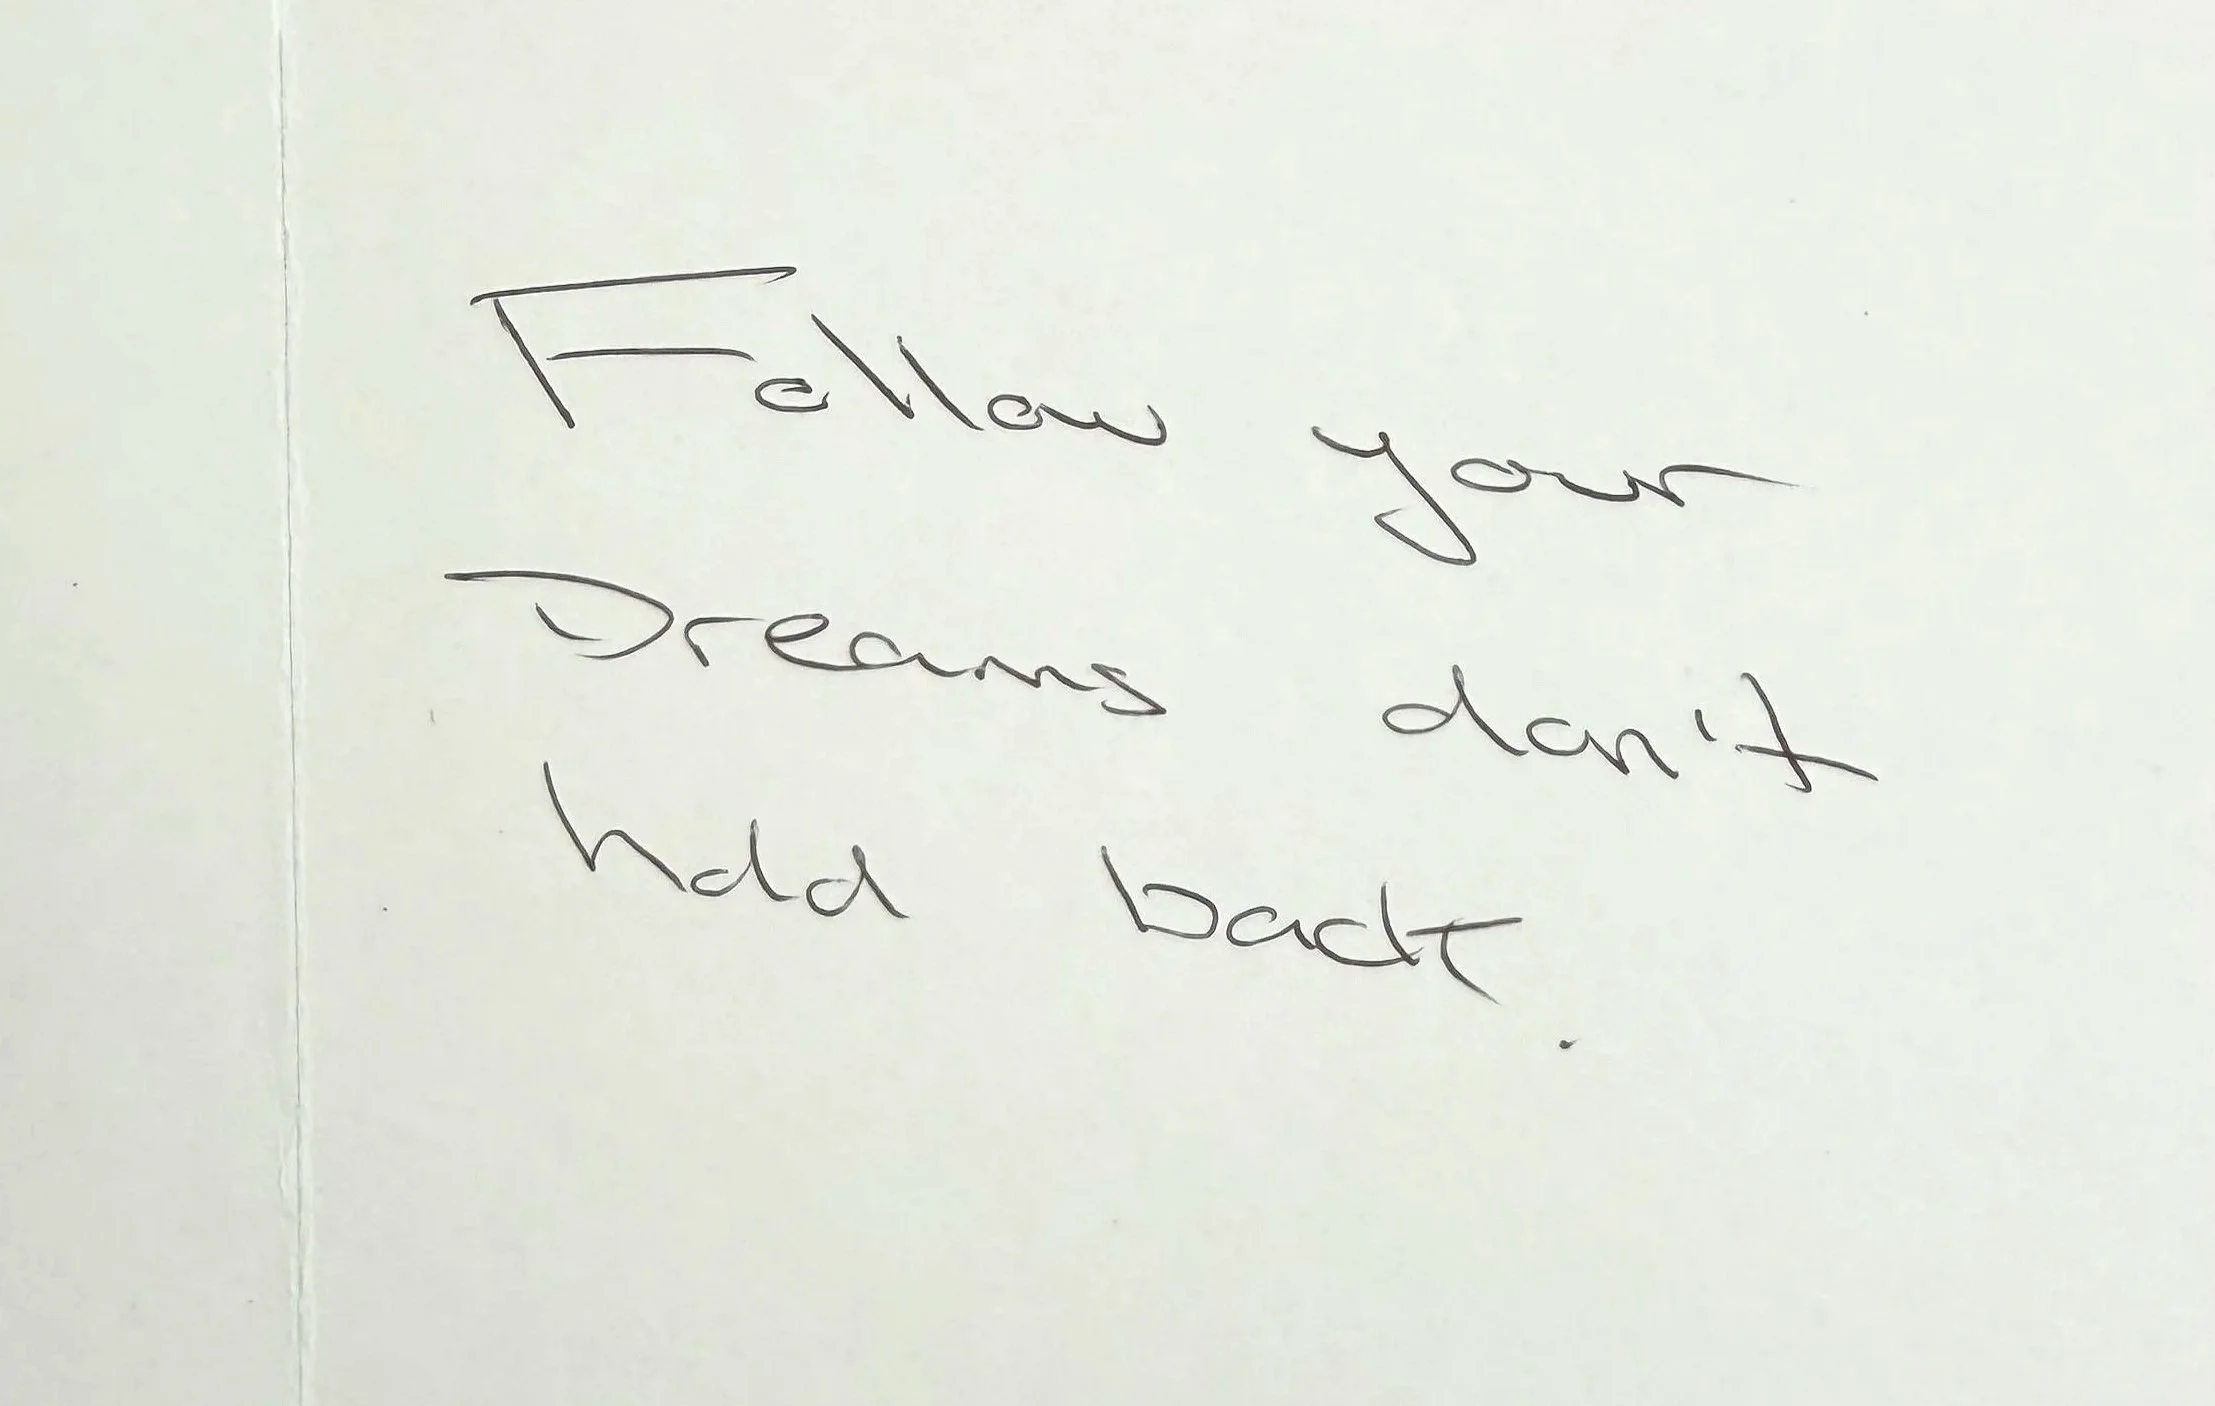 Follow your
Dreams don't
hold back.